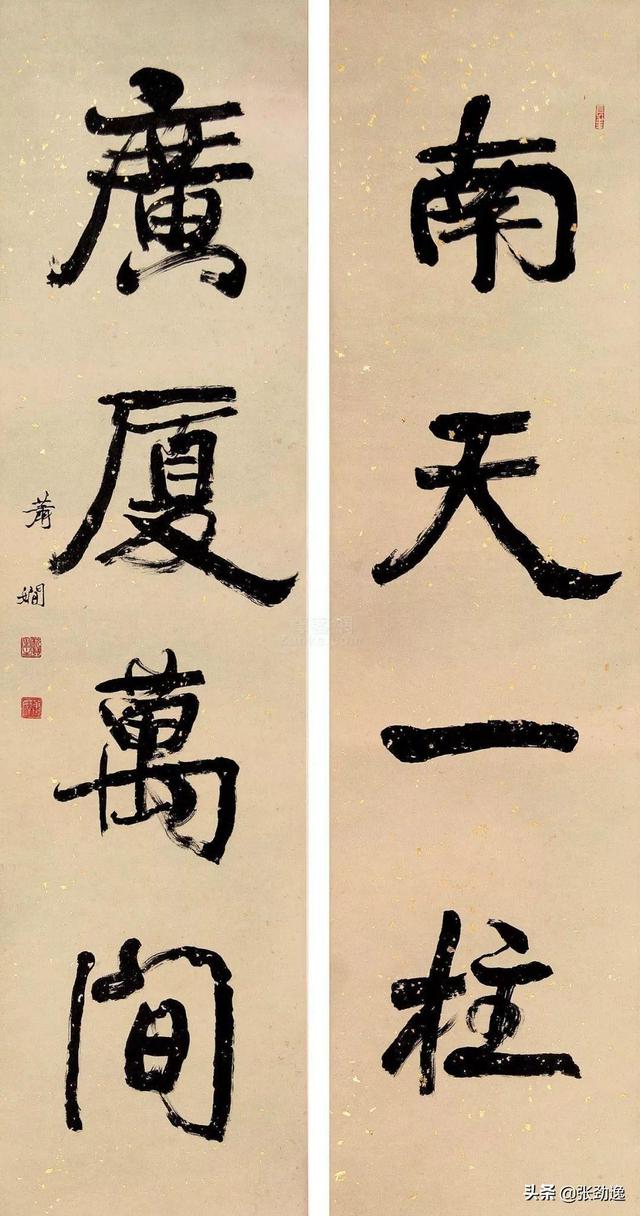 南天一柱
廣厦萬間
蕭嫺
头条 @张劲逸